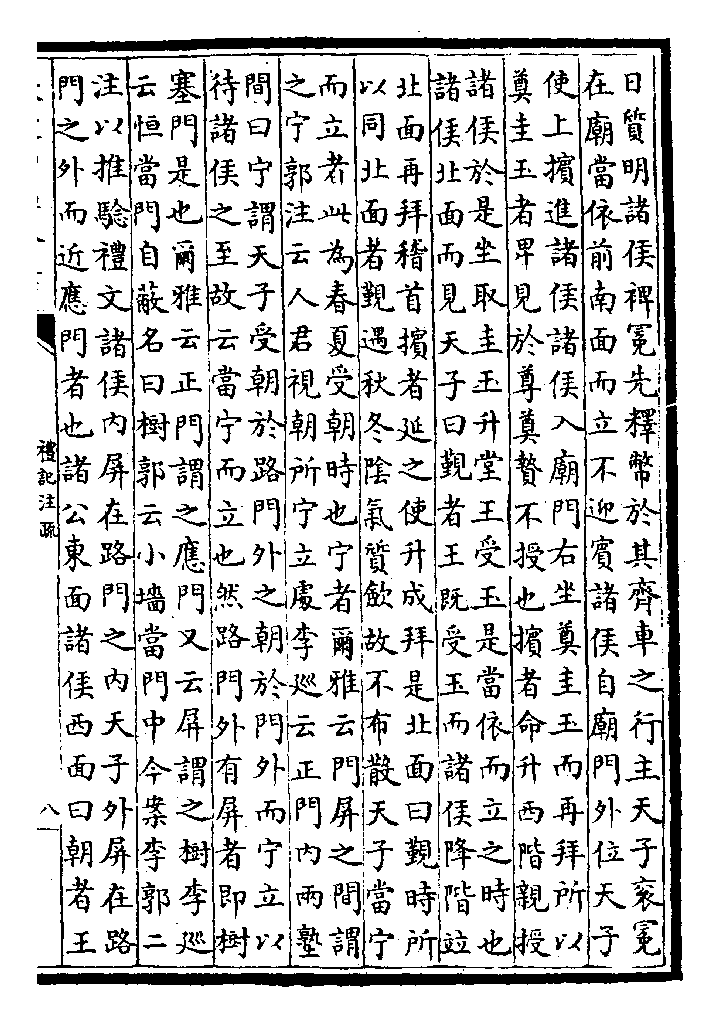 日質明諸侯裨冕先釋幣於其齊車之行主天子衮冕
在廟當依前南面而立不迎賔諸侯自廟門外位天子
使上擯進諸侯諸侯入廟門右坐奠圭玉而再拜所以
奠圭玉者卑見於尊奠贄不授也擯者命升西階親授
諸侯於是坐取圭玉升堂王受玉是當依而立之時也
諸侯北面而見天子曰覲者王既受玉而諸侯降階竝
北面再拜稽首擯者延之使升成拜是北面曰覲時所
以同北面者覲遇秋冬陰氣質歛故不布散天子當宁
而立者此為春夏受朝時也宁者爾雅云門屏之間謂
之宁郭注云人君視朝所宁立處李廵云正門内兩塾
間曰宁謂天子受朝於路門外之朝於門外而宁立以
待諸侯之至故云當宁而立也然路門外有屏者即樹
塞門是也爾雅云正門謂之應門又云屏謂之樹李廵
云恒當門自蔽名曰樹郭云小墻當門中今案李郭二
注以推驗禮文諸侯内屏在路門之内天子外屏在路
門之外而近應門者也諸公東面諸侯西面曰朝者王
禮記注疏
八